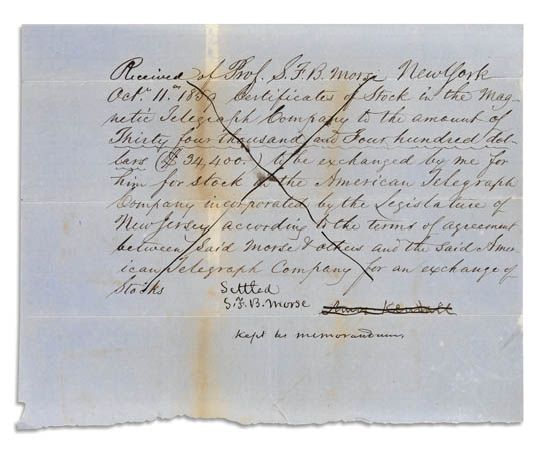 Received of Prof. S. F. B. Morse New York
Octr. 11th 185 Certificates of Stock in the Mag-
netic Telegraph Company to the amount of
Thirty four thousand and Four hundred dol-
lars ($34,400.) to be exchanged by me for
him for stock in the American Telegraph
Company incorporated by the Legislature of
New Jersey according to the terms of agreement
between said Morse & others and the said Amer-
ican Telegraph Company for an exchange of
Stocks
Settled
S. F. B. Morse
Amos Kendall
Kept as memorandum,